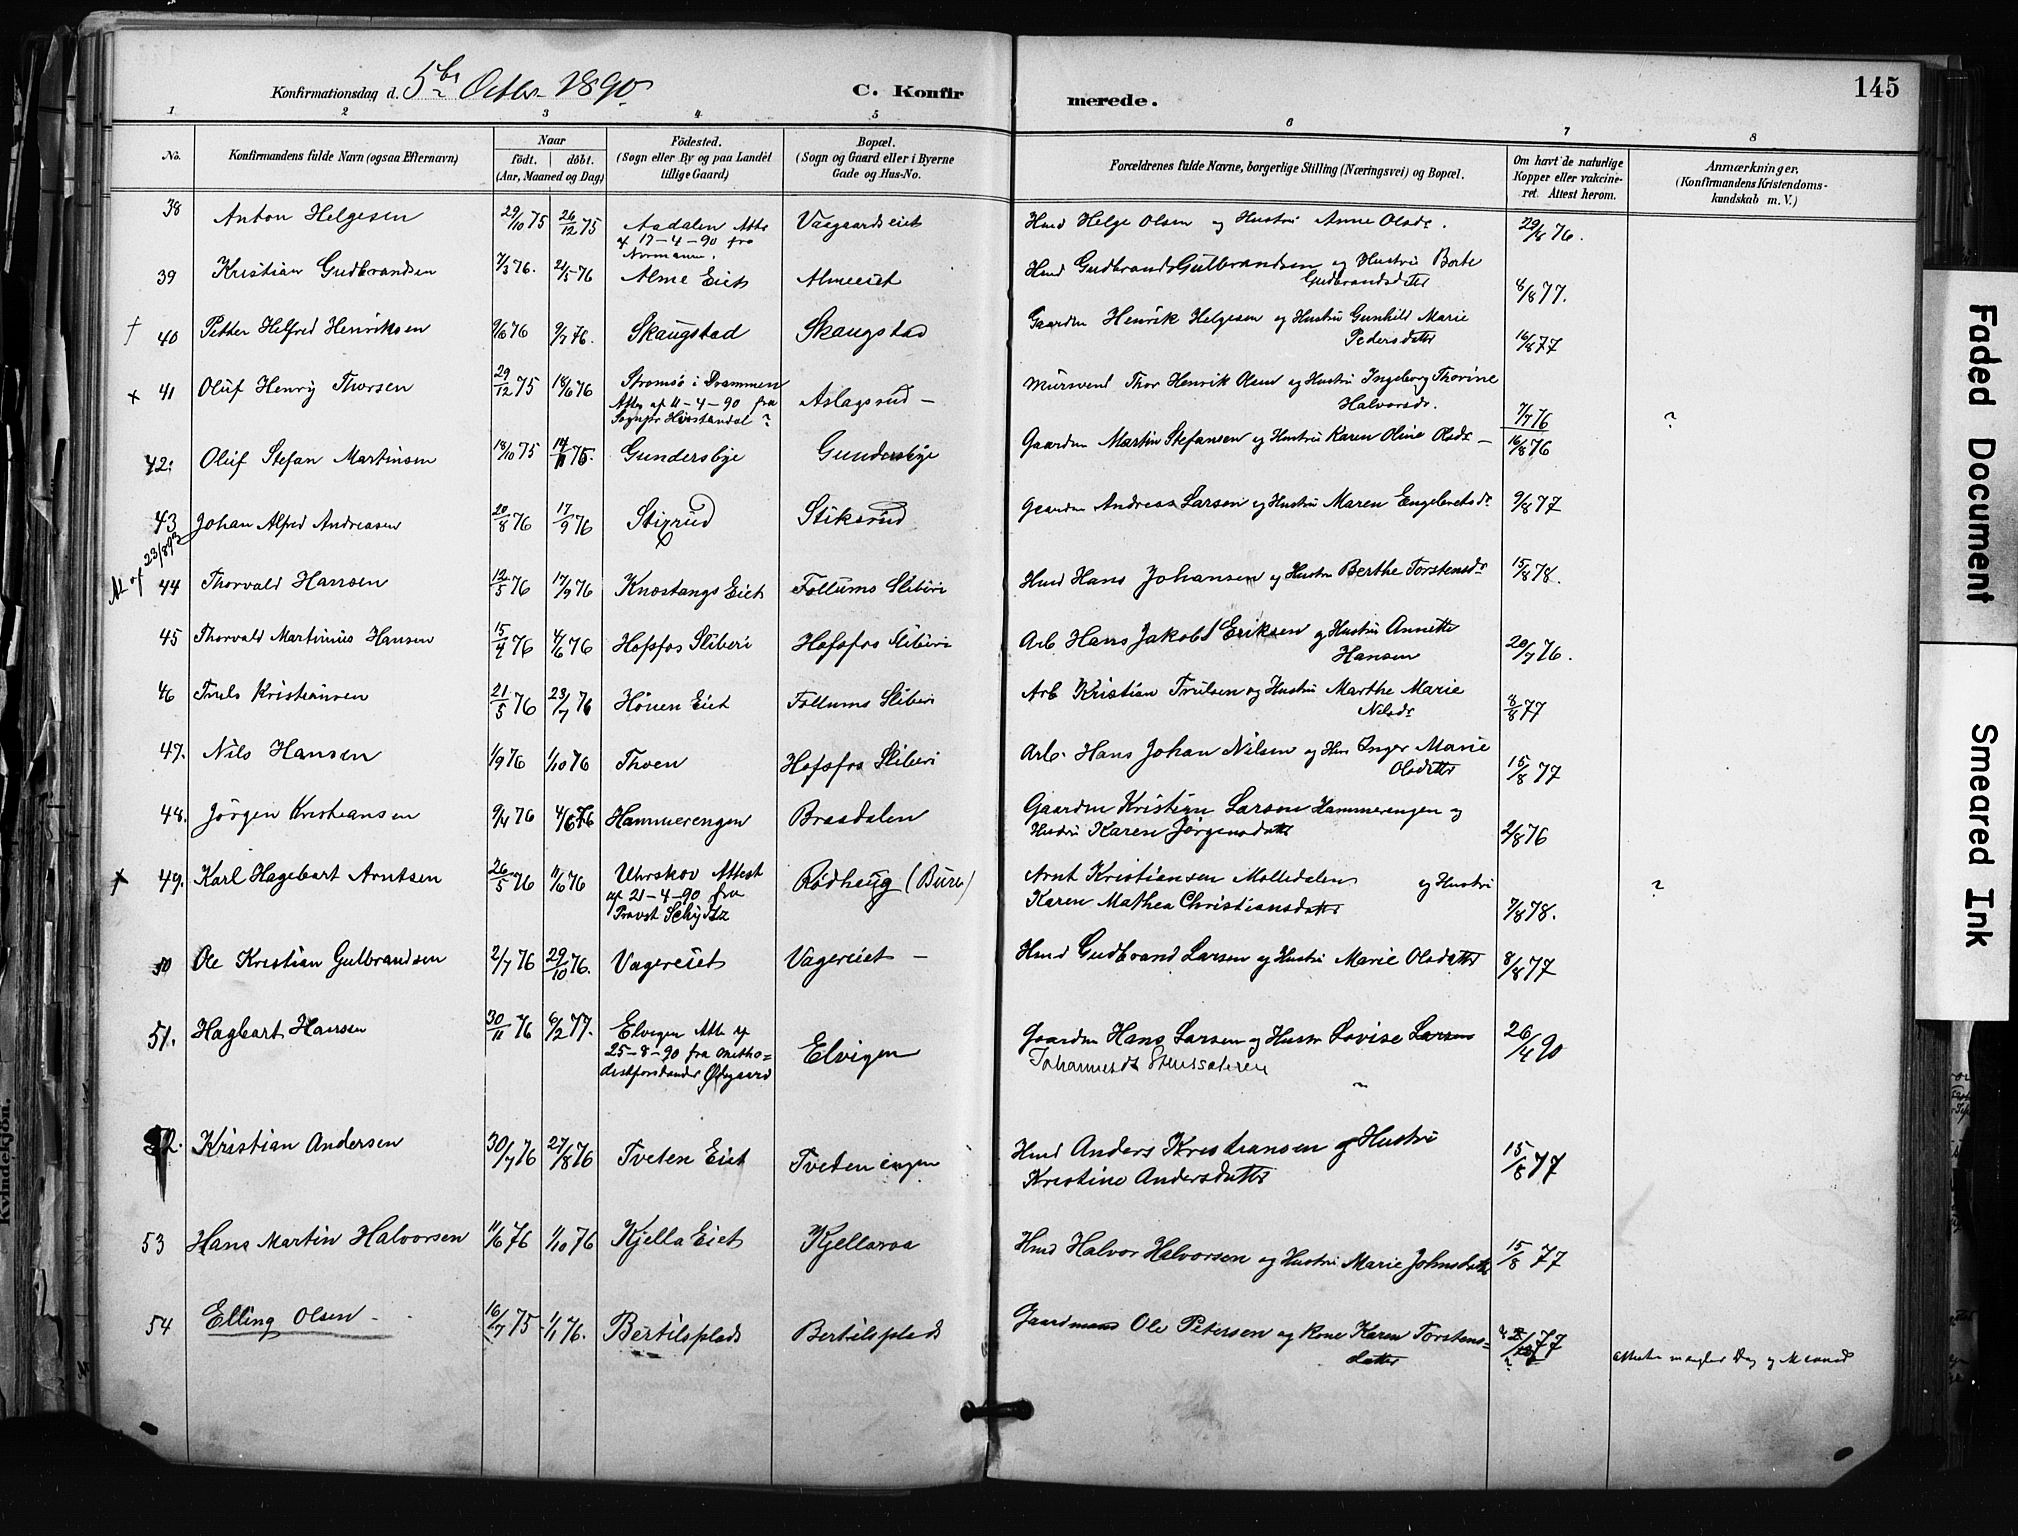 Konfirmationsdag d. 5te Octbr 1890
C. Konfirmerede.
145
1 2 3 4 5 6 7 8
No. Konfirmandens fulde Navn (ogsaa Efternavn) Naar født. | døbt. (Aar, Maaned og Dag) Fødested. (Sogn eller By og paa Landet tillige Gaard) Bopæl. (Sogn og Gaard eller i Byerne Gade og Hus-No. Forældrenes fulde Navne, borgerlige Stilling (Næringsvei) og Bopæl. Om havt de naturlige Kopper eller vakcineret. Attest herom. Anmærkninger. (Konfirmandens Kristendomskundskab m. V.)
38 Anton Helgesen 29/10 75 26/12 75 Aadalen Att. af 17-4-90 fra Normann. Vaagaardseiet Hmd Helge Olsen og Hustru Anne Olsdr. 29/8 76.
39 Kristian Gudbrandsen 7/3 76. 21/5 76 Alme Eiet Almeeiet Hmd Gudbrand Gulbrandsen og Hustru Berte Gudbrandsdatter 8/8 77.
† 40 Petter Helfred Henriksen 9/6 76 9/7 76. Skaugstad Skaugstad Gaardm Henrik Helgesen og Hustru Gunhild Marie Pedersdatter 16/8 77
x 41 Oluf Henry Thorsen 29/12 75 18/6 76 Strømsø i Drammen Att. af 11-4-90 fra Sognepr Aslagsrud - Murmand Thor Henrik Olsen og Hustru Ingeborg Thorine Halvorsdr. 7/7 76 ?
42. Oluf Stefan Martinsen 18/10 75 14/11 75. Gundersbye Gundersbye Gaardm Martin Stefansen og Hustru Karen Oline Olsdr - 16/8 76
43 Johan Alfred Andreasen 20/8 76 17/9 76 Stixrud Stiksrud Gaardm Andreas Larsen og Hustru Maren Engebretsdr 9/8 77
At. af 23/893 44 Thorvald Hansen 12/5 76 17/9 76 Knestangs Eiet Follums Sliberi Hmd Hans Johansen og Hustru Berthe Torstensdr 15/8 78.
45 Thorvald Martinius Hansen 15/4 76 4/6 76 Hofsfos Sliberi Hofsfos Sliberi Arb Hans Jakob Eriksen og Hustru Annette Hansen 20/7 76.
46 Truls Kristiansen 21/5 76 23/7 76 Hønen Eiet Follums Sliberi Arb Kristian Trulsen og Hustru Marthe Marie Nilsdr 8/8 77
47. Nils Hansen 1/9 76 1/10 76 Thoen Hofsfos Sliberi Arb. Hans Johan Nilsen og Hus Inger Marie Olsdatter 15/8 77
48. Jørgen Kristiansen 9/4 76 4/6 76 Hammerengen Braadalen Gaardm Kristian Larsen Hammerengen og Hustru Karen Jørgensdatter 2/8 76
x 49. Karl Hagebart Arntsen 26/5 76 11/6 76 Uhrskov Attest af 21-4-90 fra Provst Schytz Rødhaug (Bure) Arnt Kristiansen Molledalen og Hustru Karen Mathea Christiansdatter 7/8 78. ?
50 Ole Kristian Gulbrandsen 2/7 76 29/10 76. Vagereiet Vagereiet - Hmd Gudbrand Larsen og Hustru Marie Olsdatter 8/8 77
51. Hagbart Hansen 30/11 76 6/2 77. Elvigen Att. af 25-8-90 fra Methodistforstander Ødegaard Elvigen Gaardm Hans Larsen og Hustru Lovise Larsen Johannesdr 26/4 90
52. Kristian Andersen 30/7 76 27/8 76 Tveten Eiet Tveteneingen Hmd Anders Kristiansen og Hustru Kristine Andersdatter 15/8 77
53 Hans Martin Halvorsen 11/6 76 1/10 76 Kjella Eiet Kjellaroa Hmd Halvor Halvorsen og Hustru Marie Johnsdatter 15/8 77
54 Elling Olsen - 16/7 75 1/1 76. Bertilsplads Bertilsplads Gaardmand Ole Petersen og Kone Karen Torstensdatter 77 ? Attesten mangler Dag og Maaned
Faded Document
Smeared Ink
Kvindekjøn.